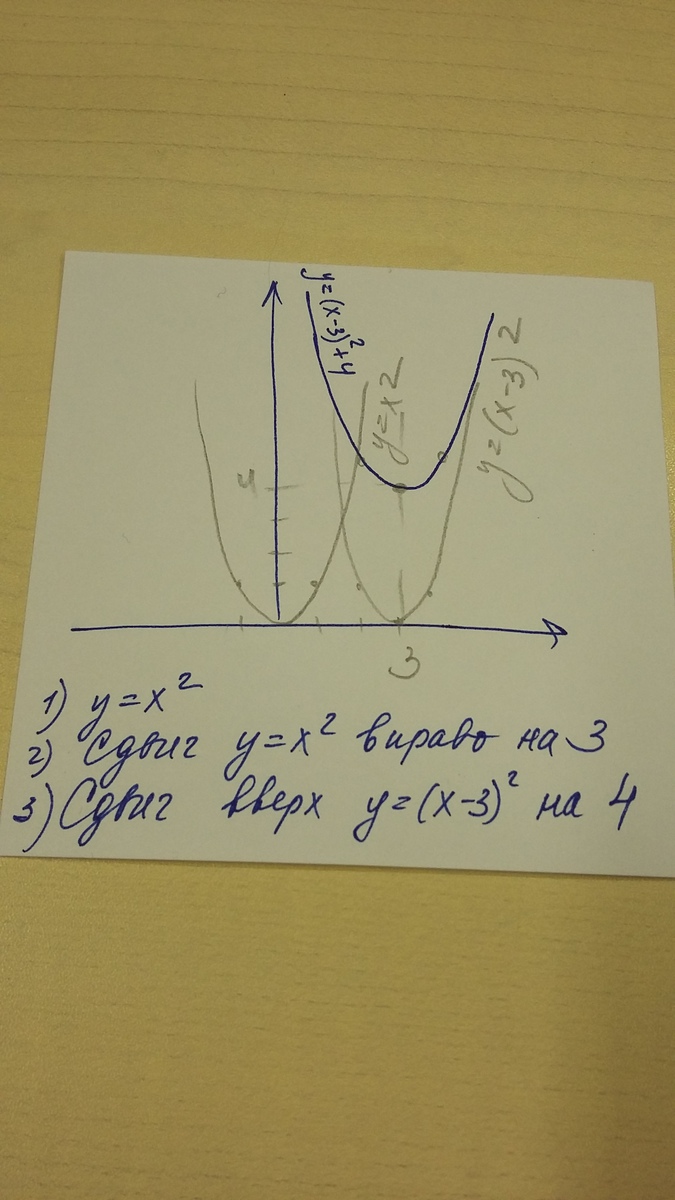 y=(x-3)²+4
y=x2
y=(x-3)2
4
3
1) y=x²
2) Сдвиг y=x² вправо на 3
3) Сдвиг вверх y=(x-3)² на 4